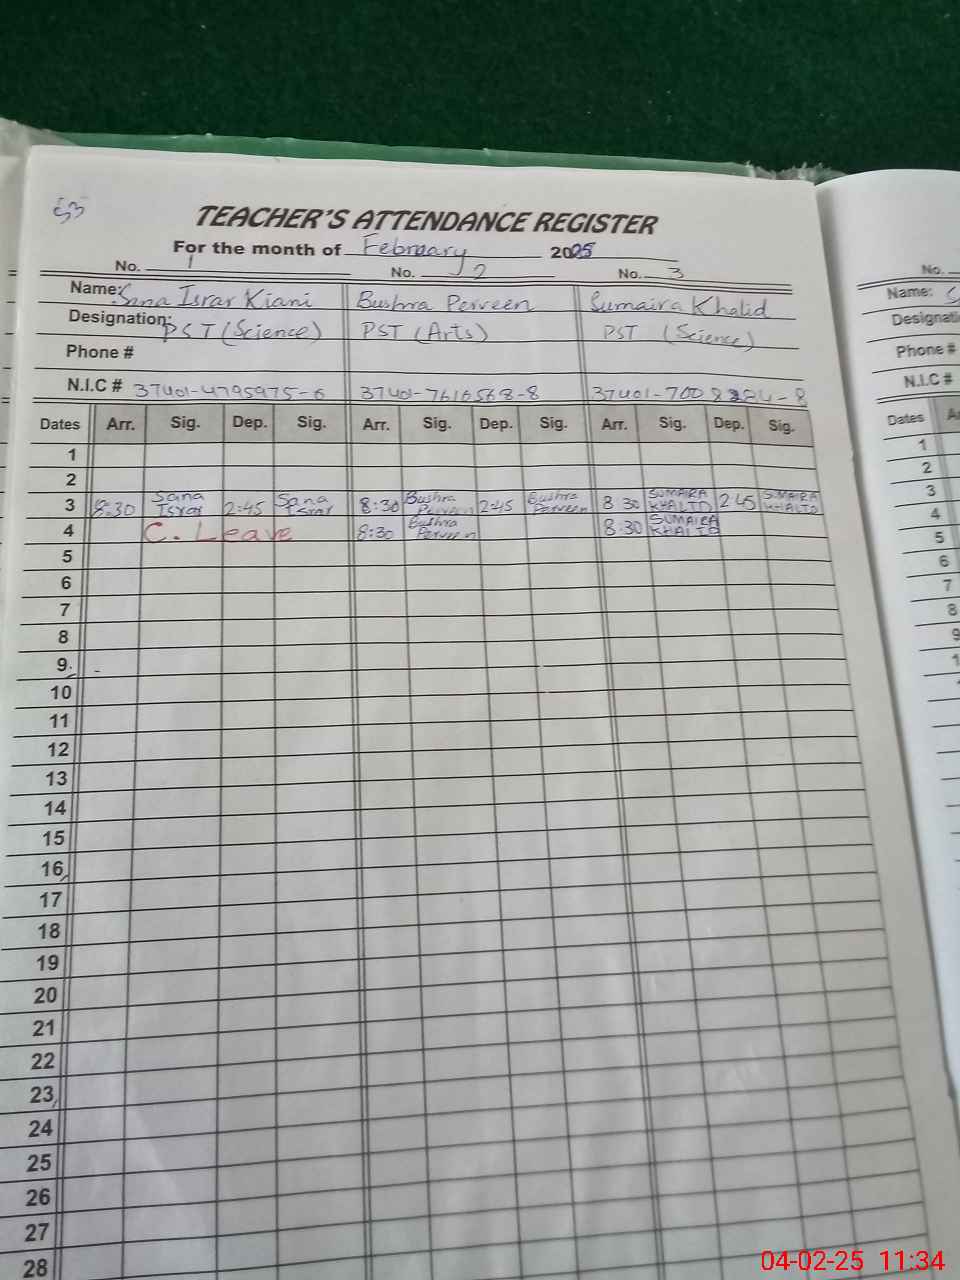 TEACHER'S ATTENDANCE REGISTER
For the month of February 2025
No. 1 No. 2 No. 3
Name: Sana Israr Kiani Bushra Perveen Sumaira Khalid
Designation: PST (Science) PST (Arts) PST (Science)
Phone #
N.I.C # 37401-4795975-6 37401-7616568-8 37401-700
Dates Arr. Sig. Dep. Sig. Arr. Sig. Dep. Sig. Arr. Sig. Dep. Sig.
1
2
3 8:30 Sana Israr 2:45 Sana Israr 8:30 Bushra Perveen 2:45 Bushra Perveen 8:30 SUMAIRA KHALID 2:45 SUMAIRA KHALID
4 C. Leave 8:30 Bushra Perveen 8:30 SUMAIRA KHALID
5
6
7
8
9
10
11
12
13
14
15
16
17
18
19
20
21
22
23
24
25
26
27
28
No.
Name: S
Designati
Phone #
N.I.C #
Dates A
1
2
3
4
5
6
7
8
9
04-02-25 11:34